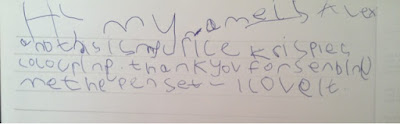 Hi my name is Alex
and this is my rice krispies
colouring. thank you for sending
me the pen set - I love it.